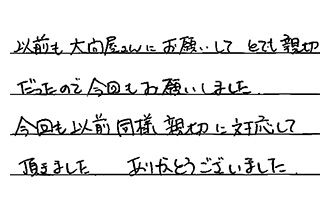 以前も大向屋さんにお願いしてとても親切
だったので今回もお願いしました.
今回も以前同様親切に対応して
頂きました ありがとうございました.